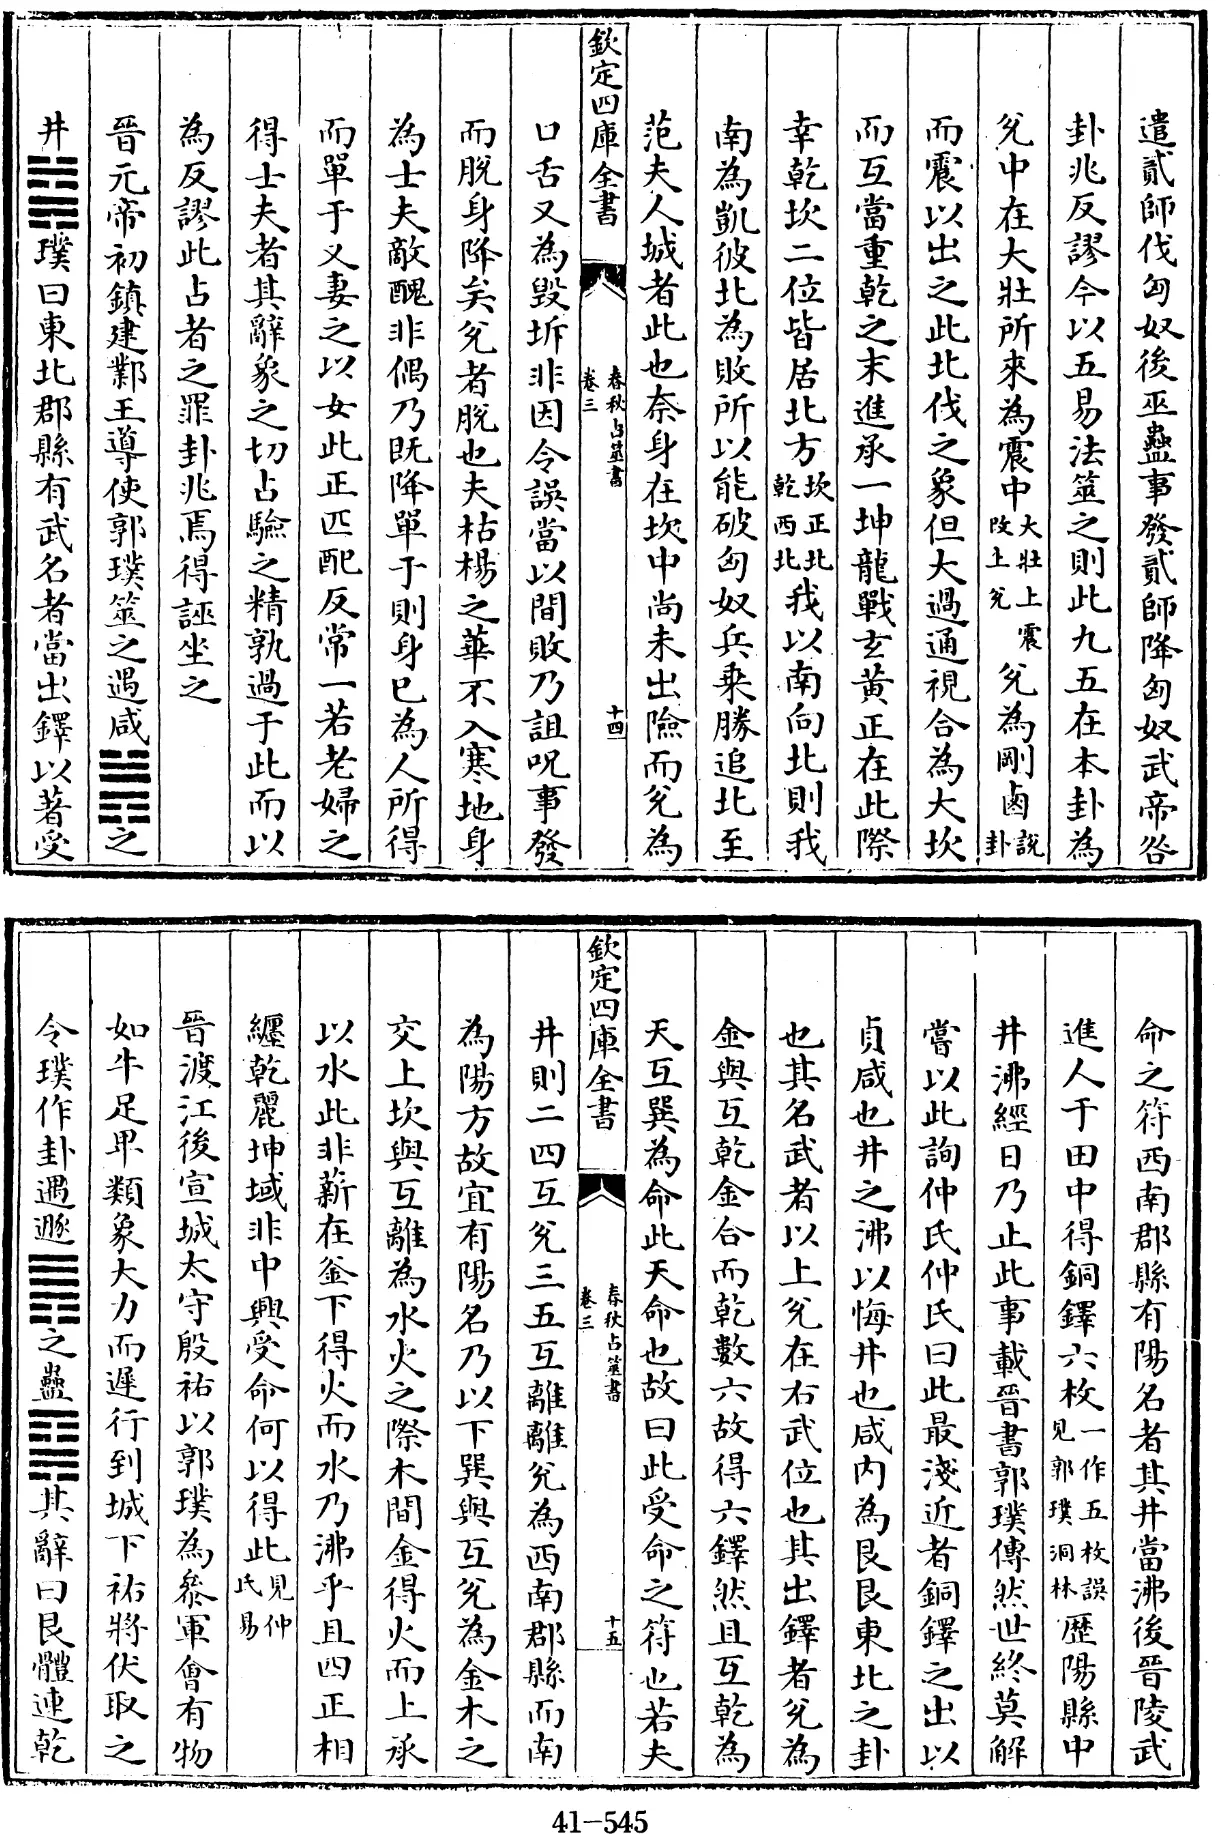 遣貳師伐匈奴後巫蠱事發貳師降匈奴武帝咎
卦兆反謬今以五易法筮之則此九五在本卦為
兌中在大壯所來為震中大壯上震改上兌兌為剛鹵說卦
而震以出之此北伐之象但大過通視合為大坎
而互當重乾之末進承一坤龍戰玄黃正在此際
幸乾坎二位皆居北方坎正北乾西北我以南向北則我
南為凱彼北為敗所以能破匈奴兵乘勝追北至
范夫人城者此也奈身在坎中尚未出險而兌為
欽定四庫全書
春秋占筮書
卷三
十四
口舌又為毀坼非因令誤當以間敗乃詛呪事發
而脫身降矣兌者脫也夫枯楊之華不入寒地身
為士夫敵醜非偶乃既降單于則身已為人所得
而單于又妻之以女此正匹配反常一若老婦之
得士夫者其辭象之切占驗之精孰過于此而以
為反謬此占者之罪卦兆焉得誣坐之
晉元帝初鎮建鄴王導使郭璞筮之遇咸䷞之
井䷯璞曰東北郡縣有武名者當出鐸以著受
命之符西南郡縣有陽名者其井當沸後晉陵武
進人于田中得銅鐸六枚一作五枚誤見郭璞洞林歷陽縣中
井沸經日乃止此事載晉書郭璞傳然世終莫解
嘗以此詢仲氏仲氏曰此最淺近者銅鐸之出以
貞咸也井之沸以悔井也咸內為艮艮東北之卦
也其名武者以上兌在右武位也其出鐸者兌為
金與互乾金合而乾數六故得六鐸然且互乾為
天互巽為命此天命也故曰此受命之符也若夫
欽定四庫全書
春秋占筮書
卷三
十五
井則二四互兌三五互離離兌為西南郡縣而南
為陽方故宜有陽名乃以下巽與互兌為金木之
交上坎與互離為水火之際木間金得火而上承
以水此非薪在釜下得火而水乃沸乎且四正相
纏乾麗坤域非中興受命何以得此見仲氏易
晉渡江後宣城太守殷祐以郭璞為參軍會有物
如牛足卑類象大力而遲行到城下祐將伏取之
令璞作卦遇遯䷠之蠱䷑其辭曰艮體連乾
41-545